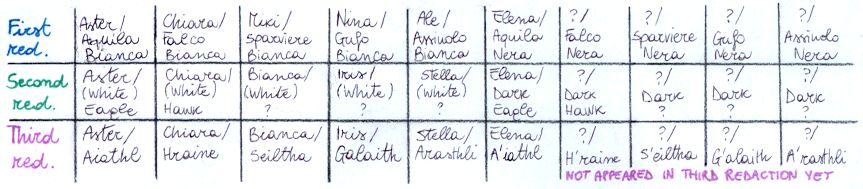 First red. Aster/ Aquila Bianca Chiara/ Falco Bianca Miki/ Sparviere Bianca Nina/ Gufo Bianca Ale/ Assiuolo Bianca Elena/ Aquila Nera ?/ Falco Nera ?/ Sparviere Nera ?/ Gufo Nera ?/ Assiuolo Nera
Second red. Aster/ (White) Eagle Chiara/ (White) Hawk Bianca/ (White) ? Iris/ (White) ? Stella/ (White) ? Elena/ Dark Eagle ?/ Dark Hawk ?/ Dark ? ?/ Dark ? ?/ Dark ?
Third red. Aster/ Aiathl Chiara/ Hraine Bianca/ Seiltha Iris/ Galaith Stella/ Arasthli Elena/ A'iathl ?/ H'raine ?/ S'eiltha ?/ G'alaith ?/ A'rasthli
NOT APPEARED IN THIRD REDACTION YET